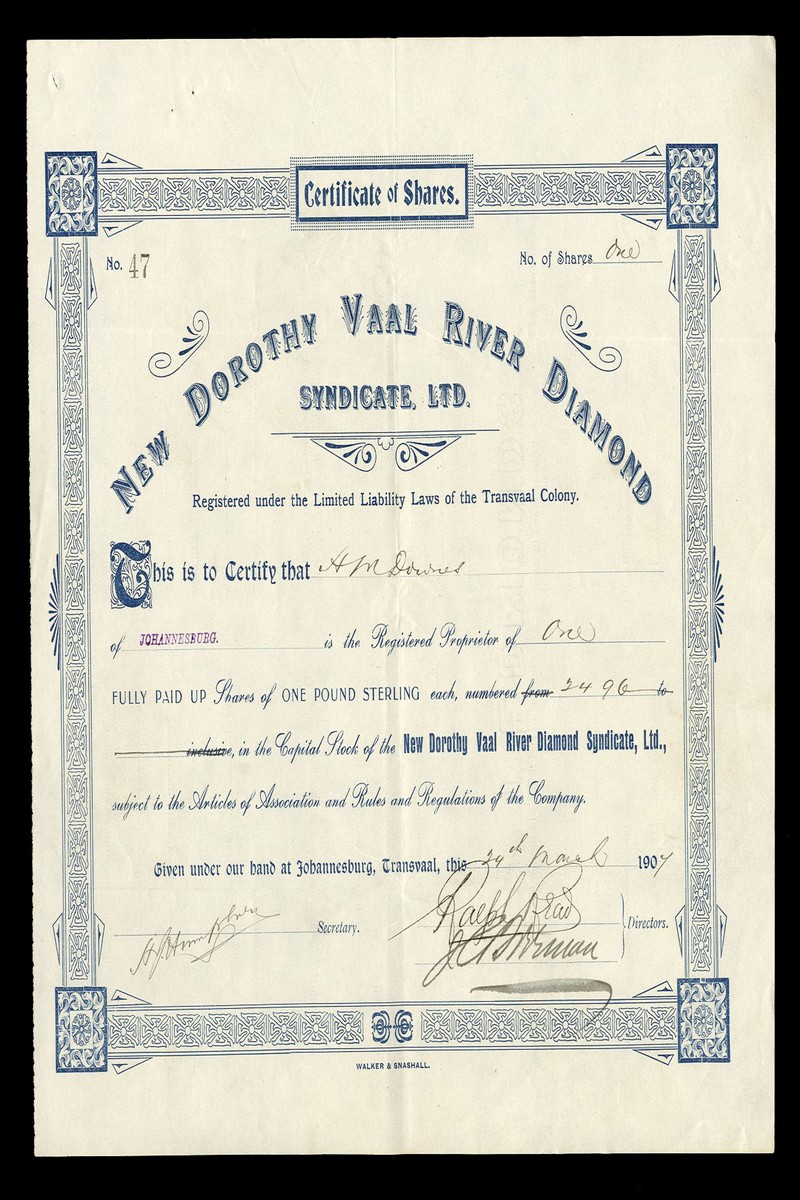 Certificate of Shares.
No. 47
No. of Shares One
NEW DOROTHY VAAL RIVER DIAMOND
SYNDICATE, LTD.
Registered under the Limited Liability Laws of the Transvaal Colony.
This is to Certify that H M Downes
of JOHANNESBURG. is the Registered Proprietor of One
FULLY PAID UP Shares of ONE POUND STERLING each, numbered from 2496 to
inclusive, in the Capital Stock of the New Dorothy Vaal River Diamond Syndicate, Ltd.,
subject to the Articles of Association and Rules and Regulations of the Company.
Given under our hand at Johannesburg, Transvaal, this 24th March 1907
Secretary.
Ralph
Directors.
WALKER & SNASHALL.